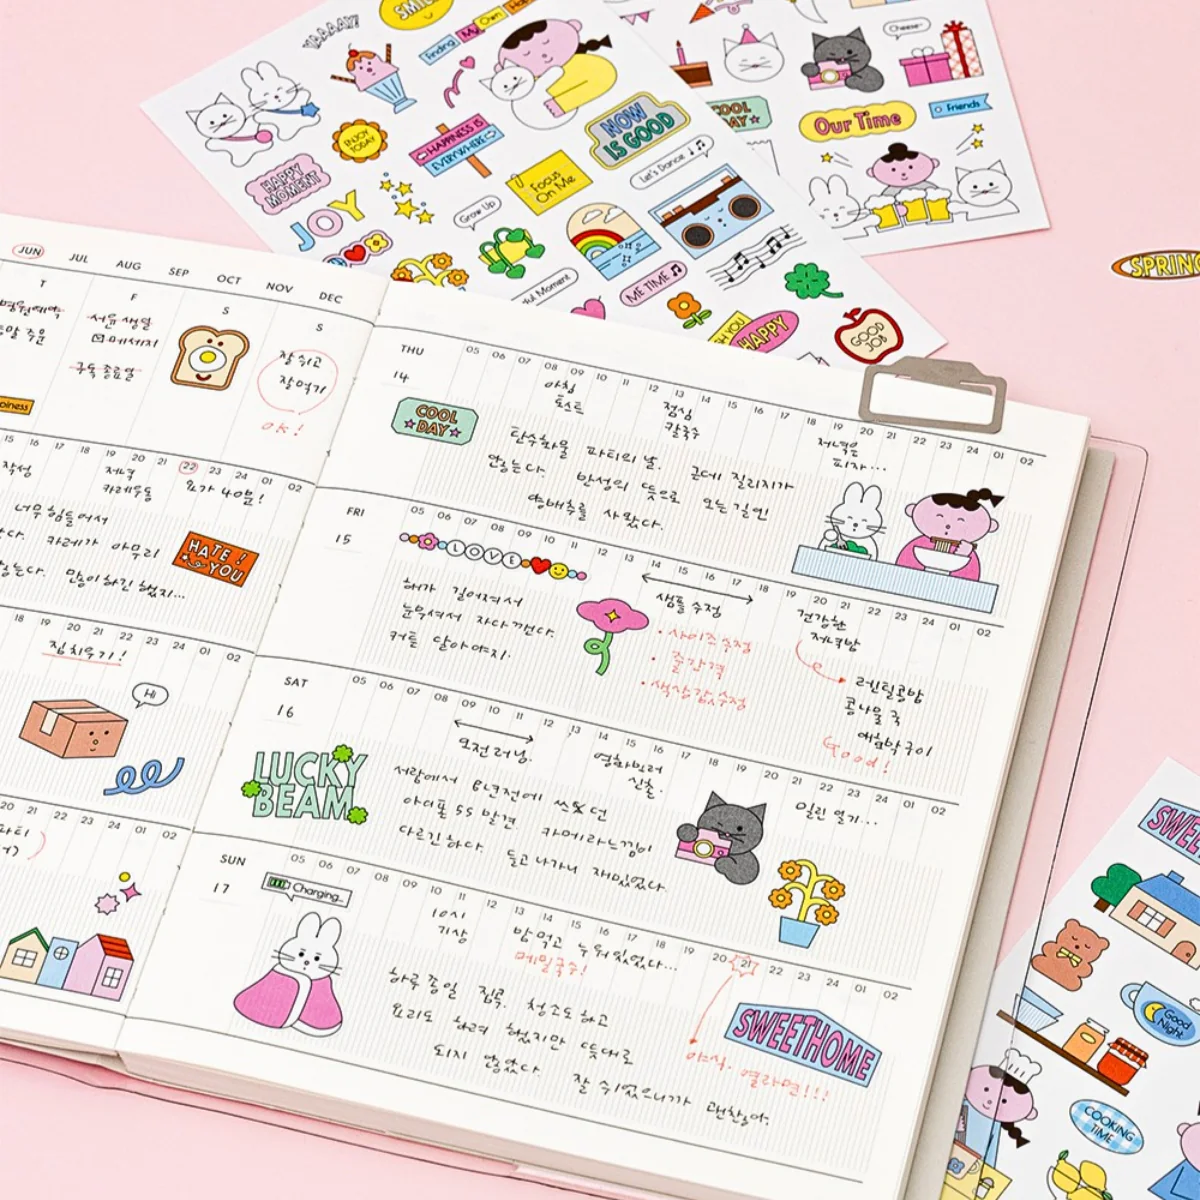 YAAAAY!
SMILE
Finding My Own Happ
ENJOY TODAY
HAPPINESS IS
EVERYWHERE
NOW
IS GOOD
HAPPY
MOMENT
JOY
Focus
On Me
Grow Up
Let's Dance ♫
ME TIME ♫
ful Moment
HAPPY
GOOD
JOB
Cheese~
COOL
DAY
Our Time
Friends
SPRING
JUN JUL AUG SEP OCT NOV DEC
T F S S
서윤 생일
메세지
구독 종료일
잘 쉬고
잘 먹기
OK!
piness
15 16 17 18 19 20 21 22 23 24 01 02
작성
저녁
카레우동
요가 40분!
너무 힘들어서
카레가 아무리
많이 하긴 했지...
HATE!
YOU
18 19 20 21 22 23 24 01 02
집 치우기!
Hi
20 21 22 23 24 01 02
파티
THU
05 06 07 08 09 10 11 12 13 14 15 16 17 18 19 20 21 22 23 24 01 02
14
아침
토스트
점심
칼국수
저녁은
피자...
COOL
DAY
탄수화물 파티의 날. 근데 질리지가
않는다. 반성의 뜻으로 오는 길엔
양배추를 사 왔다.
FRI
05 06 07 08 09 10 11 12 13 14 15 16 17 18 19 20 21 22 23 24 01 02
15
LOVE
샘플 수정
건강한
저녁밥
해가 길어져서
눈부셔서 자다 깬다.
커튼 달아야지.
· 사이즈 수정
· 줄간격
· 색상감 수정
렌틸콩밥
콩나물국
애호박구이
Good!
SAT
05 06 07 08 09 10 11 12 13 14 15 16 17 18 19 20 21 22 23 24 01 02
16
오전 러닝.
영화보러
신촌.
밀린 일기...
LUCKY
BEAM
서랍에서 6년전에 쓰던
아이폰 5S 발견 카메라 느낌이
다르긴 하다. 들고 나가니 재밌었다.
SUN
05 06 07 08 09 10 11 12 13 14 15 16 17 18 19 20 21 22 23 24 01 02
17
Charging...
10시
기상
밥먹고 누워있었다...
메밀국수!
하루 종일 집콕. 청소도 하고
요리도 하려 했지만 뜻대로
되지 않았다. 잘 쉬었으니까 괜찮아.
SWEETHOME
야식. 열라면!!!
SWEET
Good
Night
COOKING
TIME